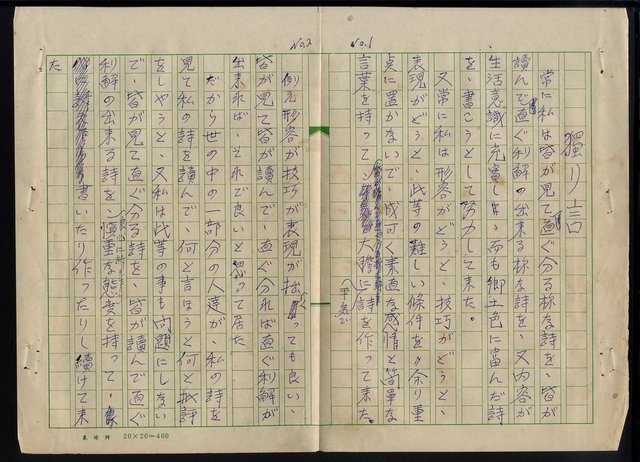 No.1
獨り言
常に私は皆が見て直ぐ分る様な詩を、皆が
讀んで直ぐ利解の出来る様な詩を、又内容が
生活意識に充實し、而も郷土色に富んだ詩
を、書こうとして努力して来た。
又常に私は形容がどうと、技巧がどうと、
表現がどうと、此等の難しい條件を余り重
点に置かないで、成可く素直な感情と簡単な
言葉を持って、大膽に詩を作って来た。
平気で
No.2
例え形容が技巧が表現が拙くっても良い、
皆が見て皆が讀んで、直ぐ分れば直ぐ利解が
出来れば、それで良いと思って居た
だから世の中の一部分の人達が、私の詩を
見て私の詩を讀んで、何と言ほうと何と批評
をしやうと、又私は此等の事も問題にしない
で、皆が見て直ぐ分る詩を、皆が讀んで直ぐ
利解の出来る詩を、慎重な態度を持って、
書いたり作ったりし續けて来
た
20×20=400